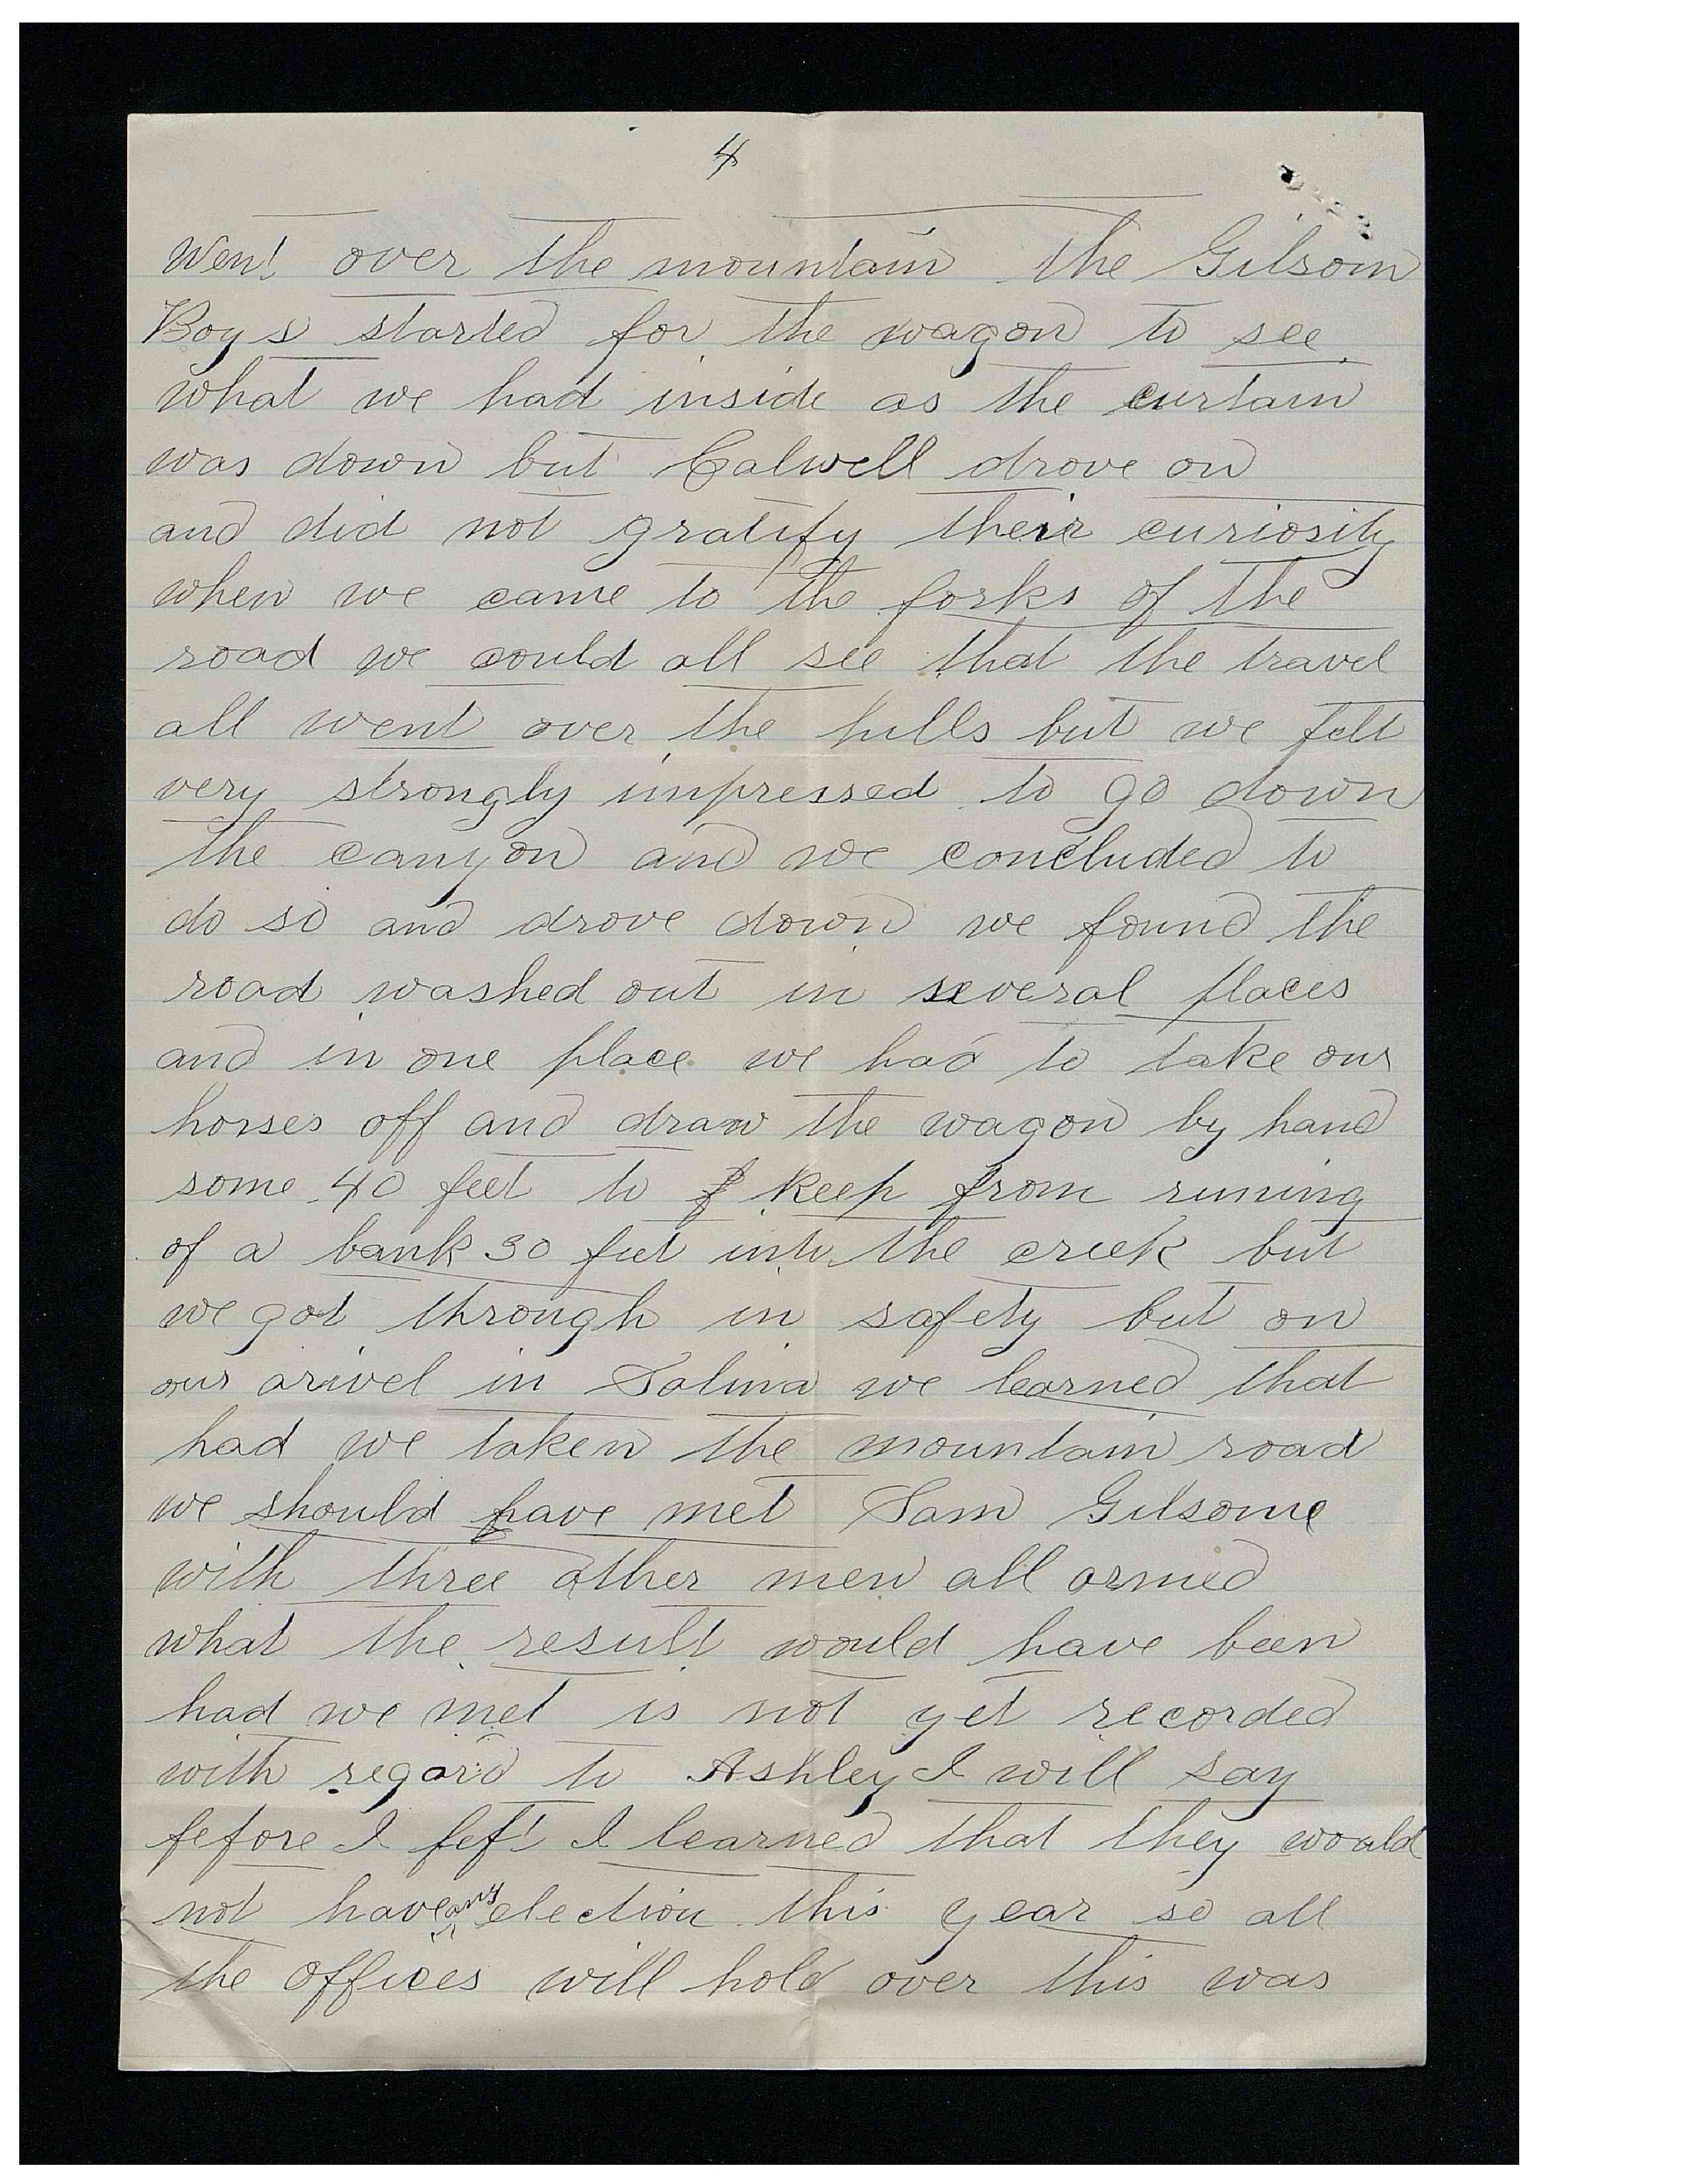 4
Went over the mountain the Gilsom
Boys started for the wagon to see
what we had inside as the curtain
was down but Calwell drove on
and did not gratify their curiosity
when we came to the forks of the
road we could all see that the travel
all went over the hills but we felt
very strongly impressed to go down
the canyon and we concluded to
do so and drove down we found the
road washed out in several places
and in one place we had to take our
horses off and draw the wagon by hand
some 40 feet to keep from runing
of a bank 30 feet into the creek but
we got through in safety but on
our arivel in Salina we learned that
had we taken the mountain road
we should have met Sam Gilsome
with three other men all armed
what the result would have been
had we met is not yet recorded
with regard to Ashley I will say
before I left I learned that they would
not have any election this year so all
the offices will hold over this was